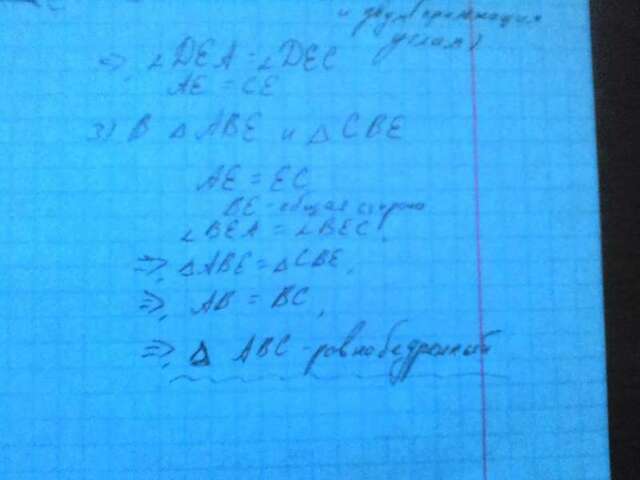 и двум прилежащим
углам)
=> ∠DEA = ∠DEC
AE = CE
3) В △ABE и △CBE
AE = EC
BE - общая сторона
∠BEA = ∠BEC,
=> △ABE = △CBE,
=> AB = BC,
=> △ ABC - равнобедренный